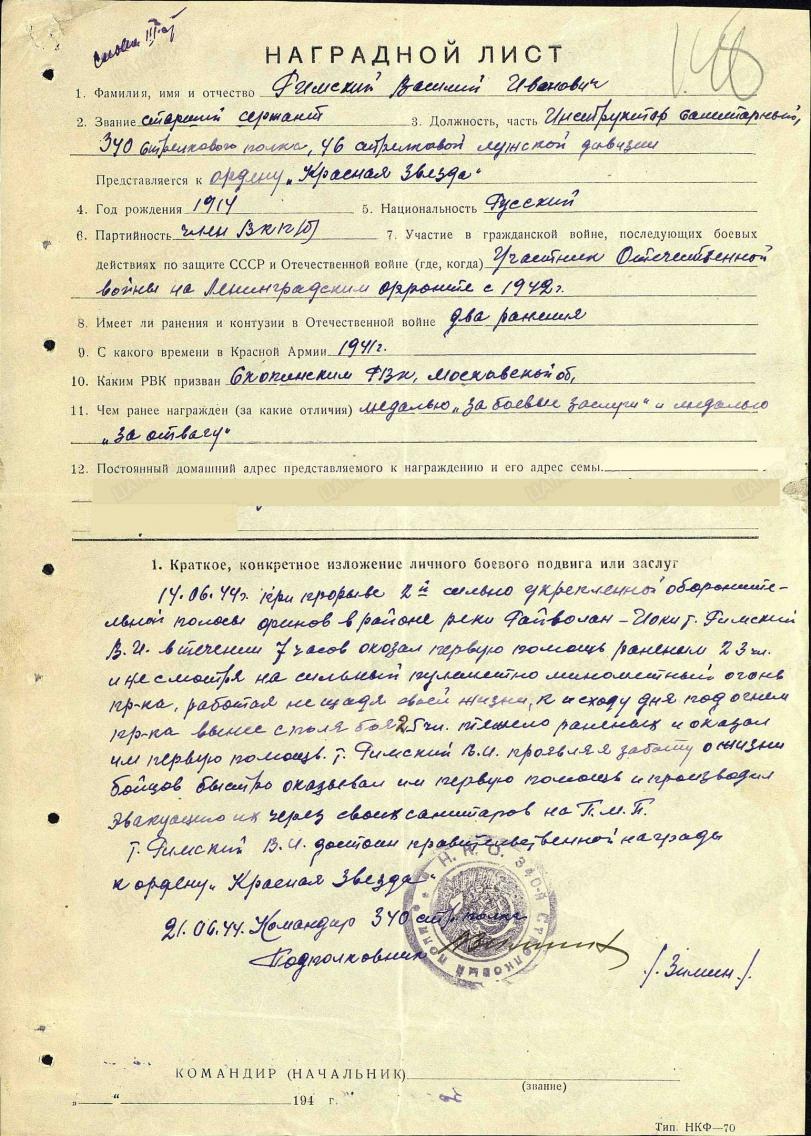 НАГРАДНОЙ ЛИСТ
1. Фамилия, имя и отчество Римский Василий Иванович
2. Звание старший сержант 3. Должность, часть Инструктор санитарный,
340 стрелкового полка, 46 стрелковой лужской дивизии
Представляется к ордену „Красная Звезда"
4. Год рождения 1914 5. Национальность Русский
6. Партийность член ВКП(б) 7. Участие в гражданской войне, последующих боевых
действиях по защите СССР и Отечественной войне (где, когда) Участник Отечественной
войны на Ленинградским фронте с 1942г.
8. Имеет ли ранения и контузии в Отечественной войне два ранения
9. С какого времени в Красной Армии 1941г.
10. Каким РВК призван Скопинским РВК, Московской об,
11. Чем ранее награжден (за какие отличия) медалью „За боевые заслуги" и медалью
„За отвагу"
12. Постоянный домашний адрес представляемого к награждению и его адрес семьи.
1. Краткое, конкретное изложение личного боевого подвига или заслуг
14.06.44г. при прорыве 2й сильно укрепленной обороните-
льной полосы финов в районе реки Райволан-Иоки т. Римский
В.И. в течении 7 часов оказал первую помощь раненым 23 чл.
и не смотря на сильный пулеметно минометный огонь
пр-ка, работая не щадя своей жизни, к исходу дня под огнем
пр-ка вынес с поля боя 25 чл. тяжело раненых и оказал
им первую помощь. т. Римский В.И. проявляя заботу о жизни
бойцов быстро оказывал им первую помощь и производил
эвакуацию их через своих санитаров на П.М.П.
т. Римский В.И. достоин правительственной награды
к ордену „Красная Звезда"
21.06.44. Командир 340 стр. полка
Подполковник /. Зимин./
Н.К.О. 340-й Стрелковый полк
КОМАНДИР (НАЧАЛЬНИК)
(звание)
„ " 194 г.
Тип. НКФ—70